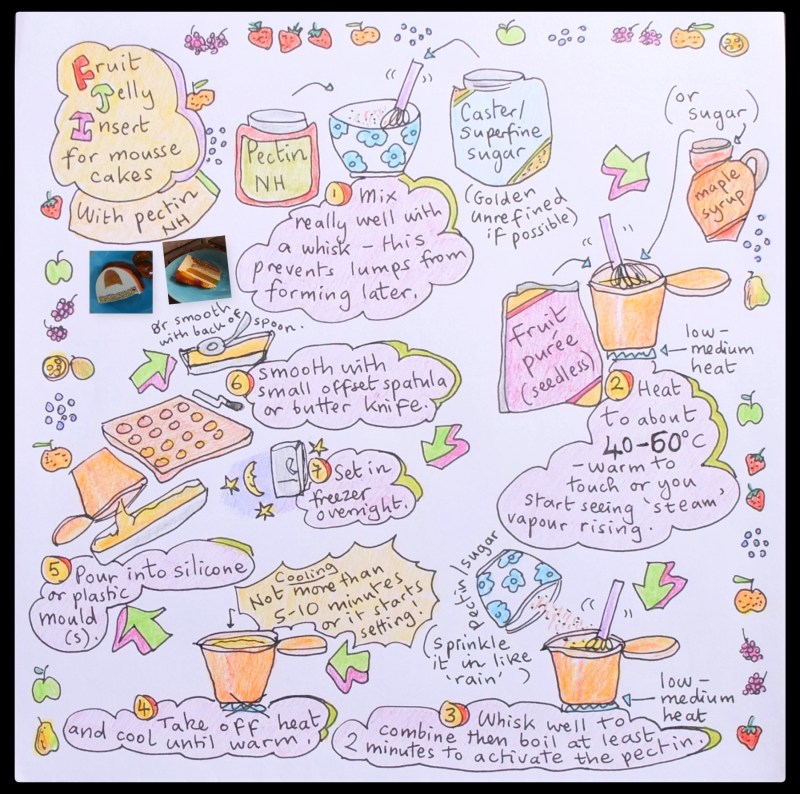 Fruit
Jelly
Insert
for mousse
cakes
With pectin
NH
Pectin
NH
Caster/
superfine
sugar
(Golden
unrefined
if possible)
1 Mix
really well with
a whisk - this
prevents lumps from
forming later.
(or
sugar)
maple
syrup
fruit
purée
(seedless)
low-
medium
heat
2 Heat
to about
40-60°C
- warm to
touch or you
start seeing 'steam',
vapour rising.
pectin/sugar
(sprinkle
it in like
'rain')
low-
medium
heat
3 Whisk well to
combine then boil at least
2 minutes to activate the pectin.
Cooling
Not more than
5-10 minutes
or it starts
setting!
4 Take off heat
and cool until warm!
5 Pour into silicone
or plastic
mould
(s).
Or smooth
with back of spoon.
6 smooth with
small offset spatula
or butter knife.
7 Set in
freezer
overnight.